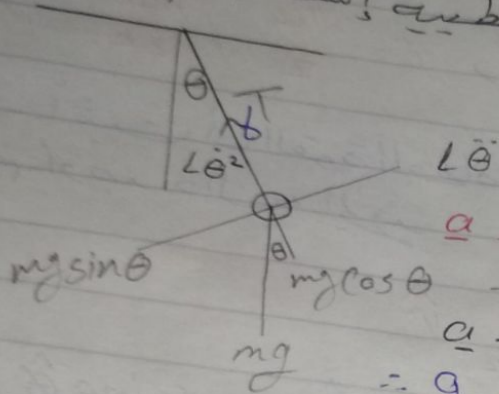 θ
T
Lθ̇²
Lθ̈
a
mg sinθ
θ
mg cosθ
a
mg
∴ a